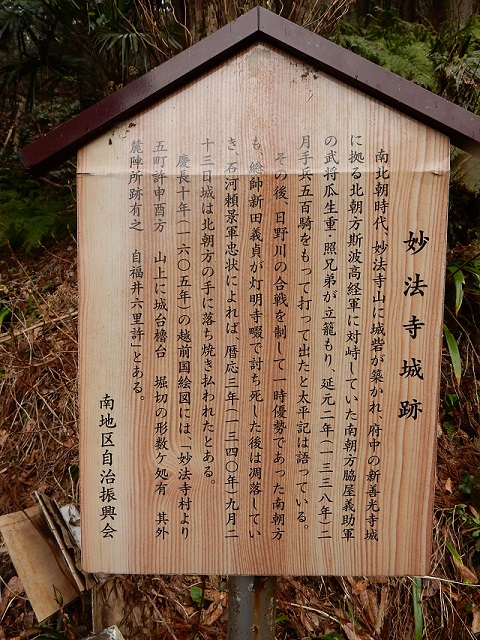 妙法寺城跡
南北朝時代、妙法寺山に城砦が築かれ、府中の新善光寺城
に拠る北朝方斯波高経軍に対峙していた南朝方脇屋義助軍
の武将瓜生重・照兄弟が立籠もり、延元二年(一三三八年)二
月手兵五百騎をもって打って出たと太平記は語っている。
その後、日野川の合戦を制して一時優勢であった南朝方
も、総帥新田義貞が灯明寺畷で討ち死した後は凋落してい
き、石河頼景軍忠状によれば、暦応三年(一三四〇年)九月二
十三日城は北朝方の手に落ち焼き払われたとある。
慶長十年(一六〇五年)の越前国絵図には、「妙法寺村より
五町許申酉方 山上に城台櫓台 堀切の形数ケ処有 其外
麓陣所跡有之 自福井六里許」とある。
南地区自治振興会